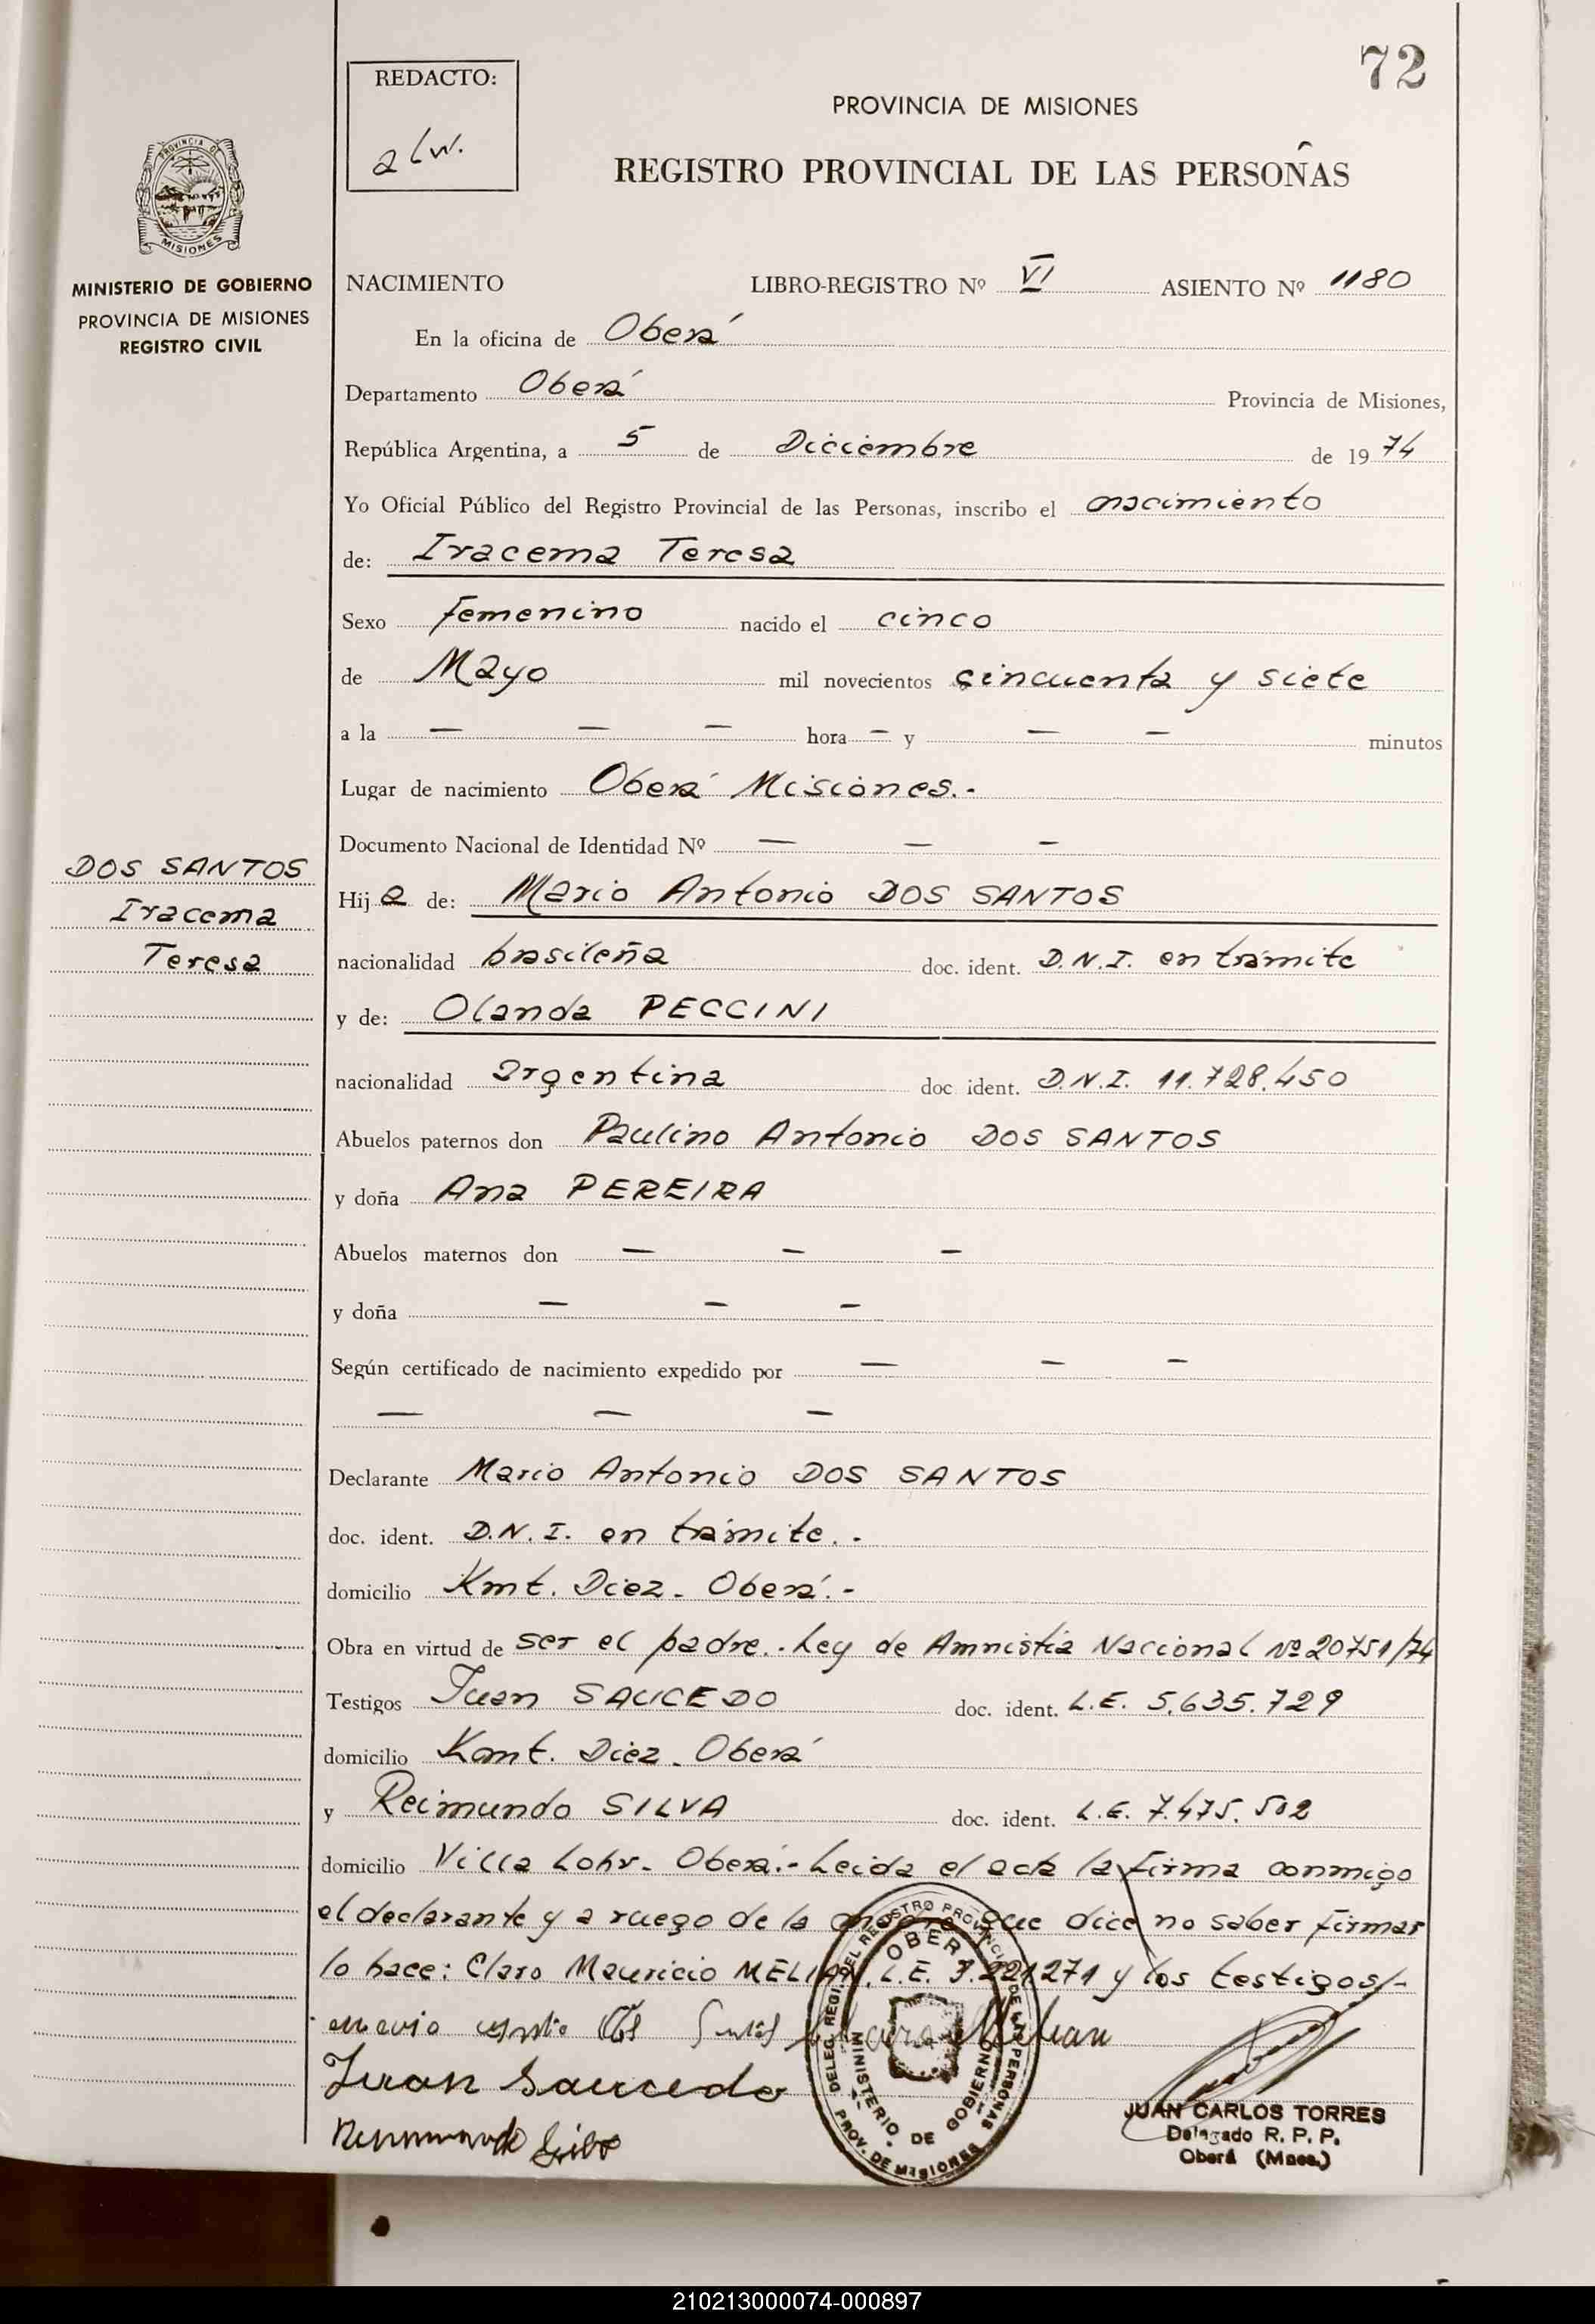 72
REDACTO:
PROVINCIA DE MISIONES
REGISTRO PROVINCIAL DE LAS PERSOÑAS
PROVINCIA DE
MISIONES
MINISTERIO DE GOBIERNO
PROVINCIA DE MISIONES
REGISTRO CIVIL
NACIMIENTO LIBRO-REGISTRO Nº VI ASIENTO Nº 1180
En la oficina de Oberá
Departamento Oberá Provincia de Misiones,
República Argentina, a 5 de Diciembre de 19 74
Yo Oficial Público del Registro Provincial de las Personas, inscribo el nacimiento
de: Iracema Teresa
Sexo femenino nacido el cinco
de Mayo mil novecientos cincuenta y siete
a la — — — hora — y — — minutos
Lugar de nacimiento Oberá Misiones.-
Documento Nacional de Identidad Nº — — —
DOS SANTOS
Iracema
Teresa
Hij a de: Mario Antonio DOS SANTOS
nacionalidad brasileña doc. ident. D.N.I. en trámite
y de: Olanda PECCINI
nacionalidad argentina doc. ident. D.N.I. 11.728.450
Abuelos paternos don Paulino Antonio DOS SANTOS
y doña Ana PEREIRA
Abuelos maternos don — — —
y doña — — —
Según certificado de nacimiento expedido por — — —
— — —
Declarante Mario Antonio DOS SANTOS
doc. ident. D.N.I. en trámite.-
domicilio Kmt. Diez - Oberá.-
Obra en virtud de ser el padre.- Ley de Amnistia Nacional Nº 20751/74
Testigos Juan SAUCEDO doc. ident. L.E. 5.635.729
domicilio Kmt. Diez - Oberá
y Reimundo SILVA doc. ident. L.E. 7.475.502
domicilio Villa Lohr - Oberá.- Leida el acta la firma conmigo
el declarante y a ruego de la madre que dice no saber firmar
lo hace: Claro Mauricio MELIAN, L.E. 7.221271 y los testigos/-
Juan Saucedo
DELEG. REGI. DEL REGISTRO PROVINCIAL DE LAS PERSONAS
OBERA
MINISTERIO DE GOBIERNO
PROV. DE MISIONES
JUAN CARLOS TORRES
Delegado R. P. P.
Oberá (Mnes.)
210213000074-000897